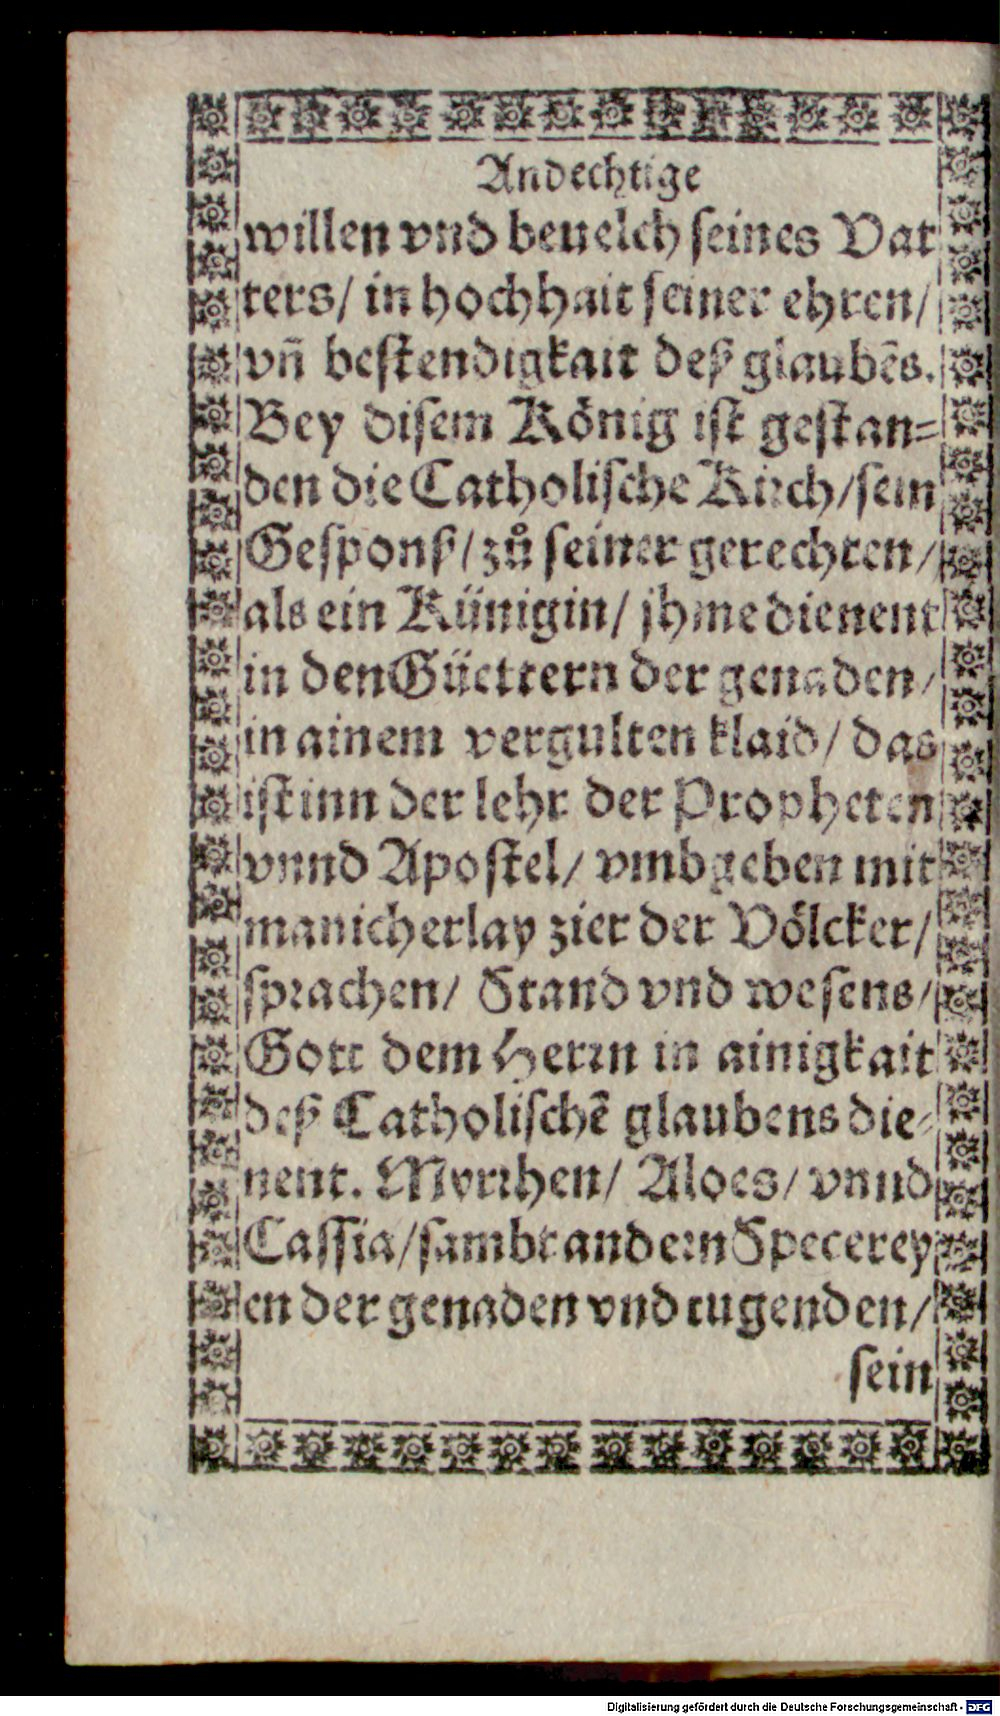 Andechtige
willen vnd beuelch seines Vat
ters/ in hochhait seiner ehren/
vn̄ bestendigkait deß glaubēs.
Bey disem König ist gestan=
den die Catholische Kirch/sein
Gesponß/zů seiner gerechten/
als ein Künigin/ jhme dienent
in den Güettern der genaden/
in ainem vergulten klaid/ das
ist inn der lehr der Propheten
vnnd Apostel/ vmbgeben mit
manicherlay zier der Völcker/
sprachen/ Stand vnd wesens/
Gott dem Herrn in ainigkait
deß Catholischē glaubens die=
nent. Myrrhen/ Aloes/ vnnd
Cassia/sambt andern Specerey
en der genaden vnd tugenden/
sein
Digitalisierung gefördert durch die Deutsche Forschungsgemeinschaft - DFG